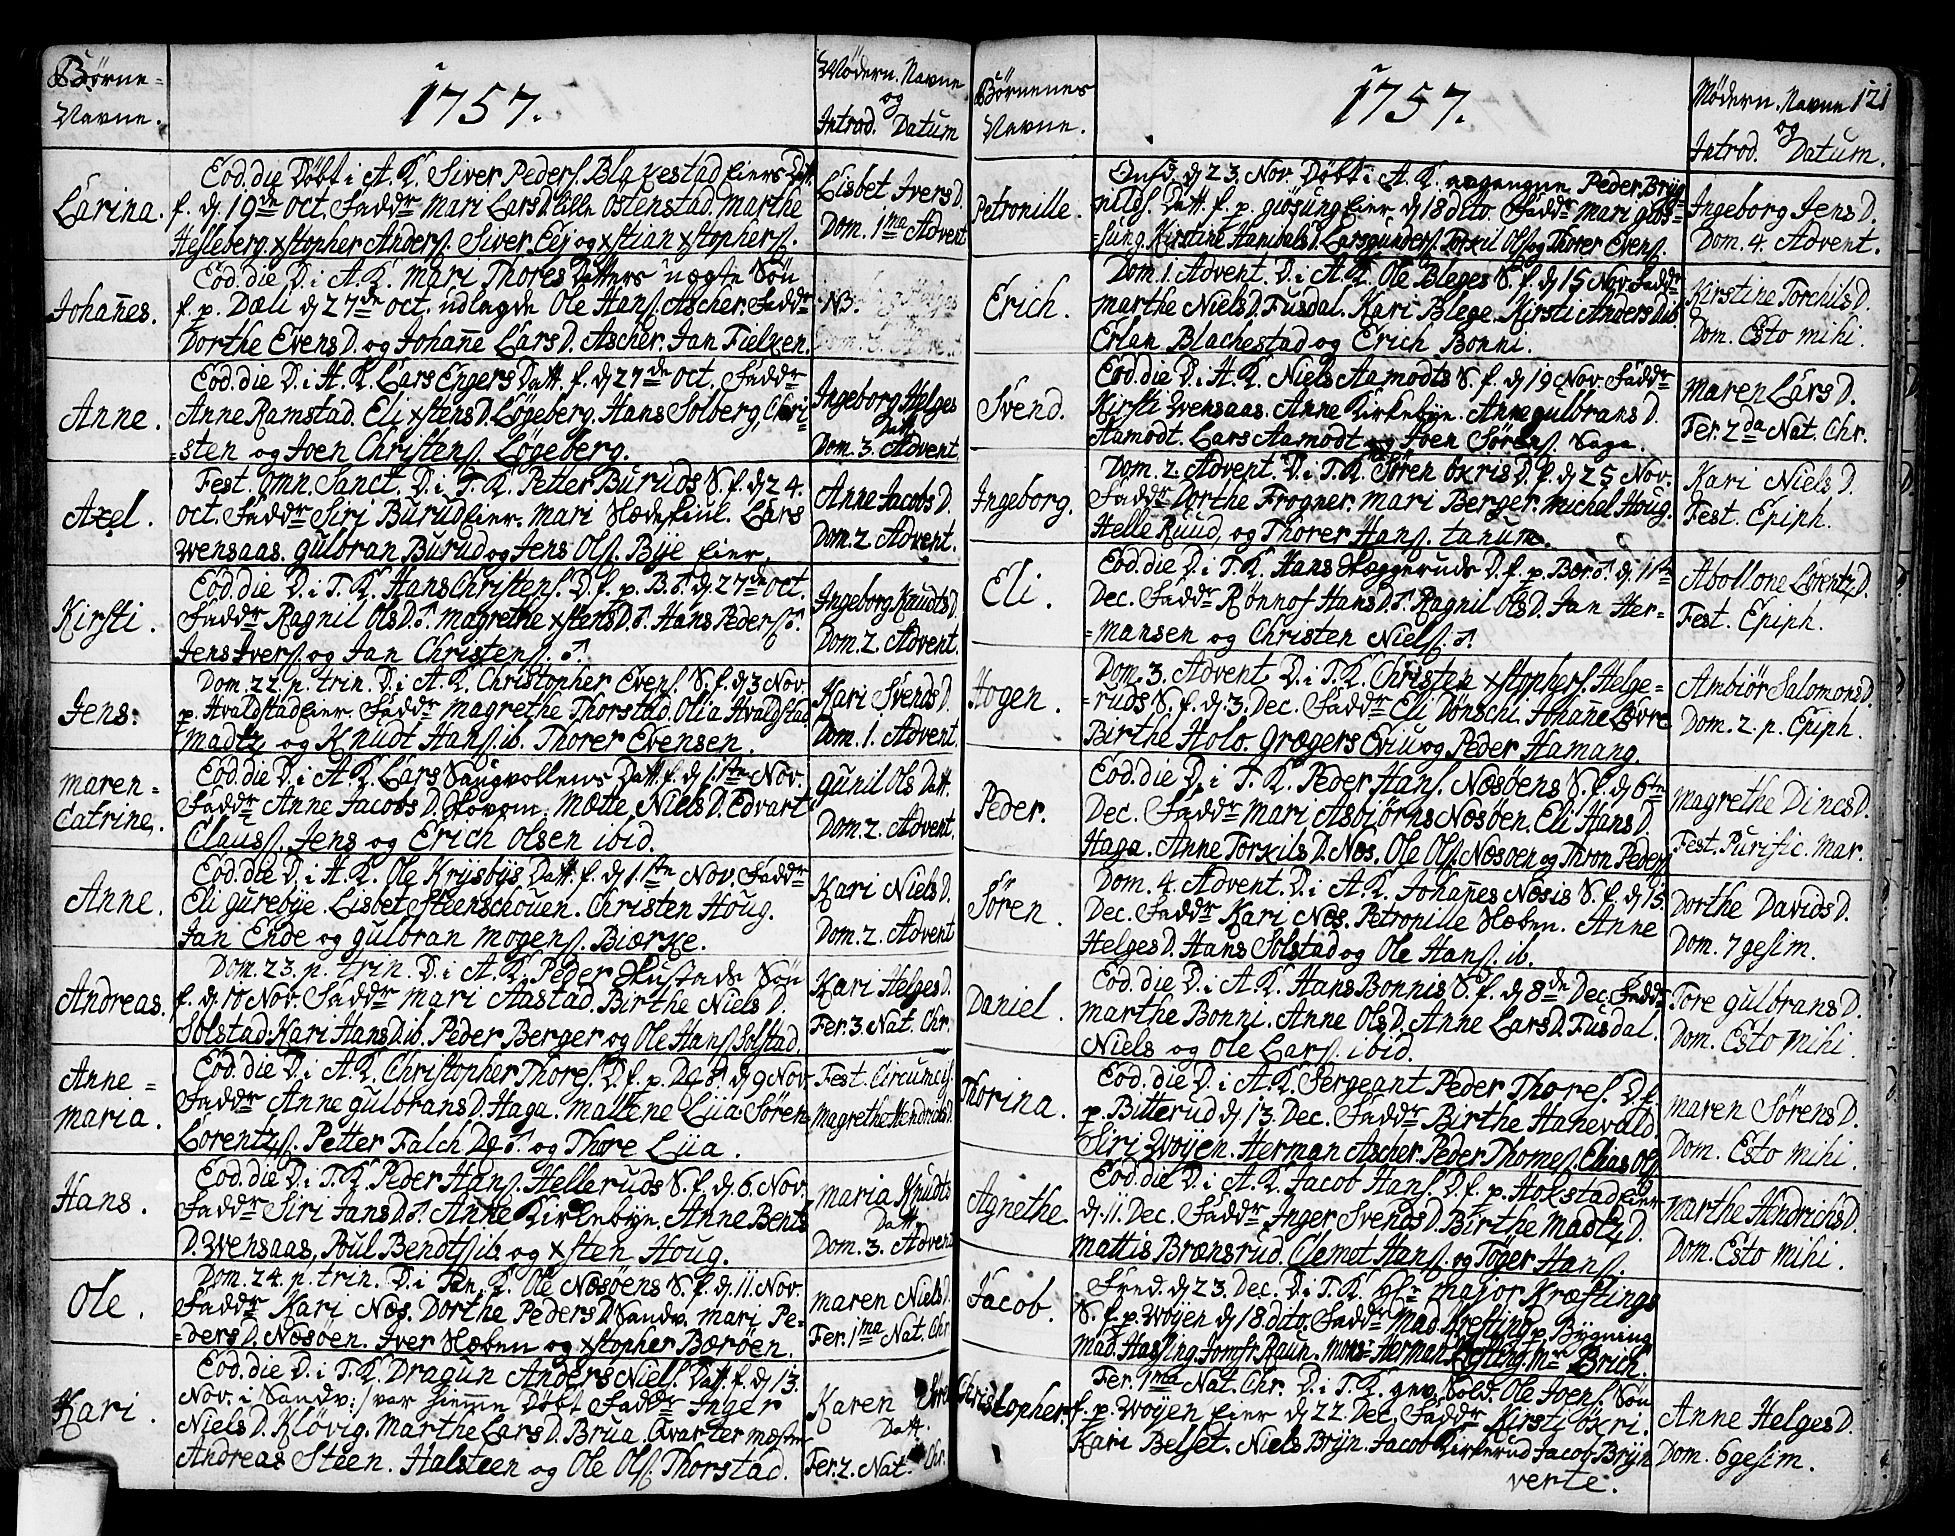 Børne-
Navne.
1757.
Mödern. Navne
og
Introd. Datum
Larina.
Eod. die Döbt i A. K. Siver Peders. Blakestad Eiers Datt.
f. d. 19de Oct. Faddr Mari Lars D. Lille Ostenstad. Marthe
Helleberg. Xstopher Anders. Siver Eej og Xstian Xstophers.
Lisbet Ivers D.
Dom. 1ma Advent
Johannes.
Eod. die D. i A. K. Mari Thores Datters uægte Sön
f. p. Dæli d. 27de Oct. udlagde Ole Hans. Ascher. Faddr
Dorthe Evens D. og Johanne Lars D. Ascher. Jan Fielken.
NB.
Anne.
Eod. die D. i A. K. Lars Engers Datt. f. d. 27de Oct. Faddr
Anne Ramstad. Eli Xstens D. Lögeberg. Hans Solberg, Chri-
=sten og Joen Christens. Lögeberg.
Ingeborg Helges
Datt.
Dom. 3. Advent.
Axel.
Fest. Omn. Sanct. D. i T. K. Petter Buruds S. f. d. 24.
Oct. Faddr Siri Burud Eier. Mari Slædekiul. Lars
Wensaas. Gulbran Burud og Jens Ols. Bye Eier.
Anne Jacobs D.
Dom. 2. Advent.
Kirsti.
Eod. die D. i T. K. Hans Christens. D. f. p. B.♂ d. 27de Oct.
Faddr Ragnil Ols D.♂ Magrethe Xstens D.♂ Hans Peders.♂
Jens Ivers. og Jan Christens. ♂
Ingeborg Knudts D.
Dom. 2. Advent.
Jens.
Dom. 22. p. trin. D. i A. K. Christopher Evens. S. f. d. 3 Nov.
p. Hvaldstad Eier. Faddr Magrethe Thorstad. Olia Hvaldstad
Madtz og Knudt Hans. ib. Thorer Evensen.
Kari Svends D.
Dom. 1. Advent.
Maren=
Catrine.
Eod. die D. i A. K. Lars Saugvollens Datt. f. d. 1.ste Nov.
Faddr Anne Jacobs D. Hovom. Mætte Niels D. Edvart
Clauss. Jens og Erich Olsen ibid.
Gunil Ols Datt.
Dom. 2. Advent.
Anne.
Eod. die D. i A. K. Ole Krysbys Datt. f. d. 1.ste Nov. Faddr
Eli Gurebye. Lisbet Steenschouen. Christen Houg.
Jan Ende og Gulbran Mogens. Biærke.
Kari Niels D.
Dom. 2. Advent
Andreas.
Dom. 23. p. trin. D. i A. K. Peder Hustads Sön
f. d. 10 Nov. Faddr Mari Aastad. Birthe Niels D.
Solstad. Kari Hans D. ib. Peder Berger og Ole Hans. Solstad.
Kari Helges D.
Fer. 3. Nat. Chr.
Anne=
Maria.
Eod. die D. i A. K. Christopher Thores. D. f. p. D. d. 9 Nov.
Faddr Anne Gulbrans D. Haga. Mallene Liia. Sören
Lorentzs. Petter Falch og Thore Liia.
Fest. Circumcis.
Magrethe Hendrichs D.
Hans.
Eod. die D. i T. K. Peder Hans. Helleruds S. f. d. 6. Nov.
Faddr Siri Jans D.♂ Anne Kirkebye. Anne Bents
D. Wensaas, Poul Bendts. ib. og Xsten Houg.
Maria Knudts
Datt.
Dom. 3. Advent
Ole.
Dom. 24. p. trin. D. i Tan. K. Ole Næsöens S. f. d. 11. Nov.
Faddr Kari Næs. Dorthe Peders D. Sandv. Mari Pe-
=ders D. Næsöen. Iver Slæben og Xstopher Bæröen.
Maren Niels D.
Fer. 1ma Nat. Chr.
Kari.
Eod. die D. i T. K. Dragun Anders Niels. Datt. f. d. 13.
Nov. i Sandv: / var hiemme Döbt Faddr Inger
Niels D. Klövig. Marthe Lars D. Brua. Qvartermæster
Andreas Steen. Halsteen og Ole Ols. Thorstad.
Karen
Datt.
Fer. 2. Nat. Chr.
Börnenes
Navne.
1757.
Mödern. Navne 121
og
Introd. Datum.
Petronille.
Onsd. d. 23. Nov. Döbt i A. K. Peder Bryg-
nilds. Datt. f. p. Giösung Eier d. 18 dito. Faddr Mari Giös-
=sung. Kirstine Hanibals D. Lars Gunders. Torkil Ols. og Thorer Evens.
Ingeborg Jens D.
Dom. 4. Advent.
Erich.
Dom. 1. Advent. D. i A. K. Ole Bleges S. f. d. 15 Nov. Faddr
Marthe Niels D. Fusdal. Kari Blege. Kirsti Anders D. ib.
Erlan Blachestad og Erich Bonni.
Kirstine Torchils D.
Dom. Esto mihi.
Svend.
Eod. die D. i A. K. Niels Aamodts S. f. d. 19 Nov. Faddr
Kirsti Wensaas. Anne Kirkebye. Anne Gulbrans D.
Aamodt. Lars Aamodt og Joen Sörens. Saga.
Maren Lars D.
Fer. 2da Nat. Chr.
Ingeborg.
Dom. 2. Advent. D. i T. K. Sören Öxris D. f. d. 25 Nov.
Faddr Dorthe Frogner. Mari Berger. Michel Houg.
Helle Ruud og Thorer Hans. Tanum.
Kari Niels D.
Fest. Epiph.
Eli.
Eod. die D. i T. K. Hans Haggeruds D. f. p. Bær.♂ d. 11te
Dec. Faddr Rönnof Hans D.♂ Ragnil Ols D. Jan Her-
=mansen og Christen Niels. ♂
Abollone Lörentz D.
Fest. Epiph.
Hogen.
Dom. 3. Advent D. i T. K. Christen Xstophers. Helge-
=ruds S. f. d. 3. Dec. Faddr Eli Dönschi. Johanne Lövre
Birthe Holo. Grægers Eviu og Peder Hamang.
Ambiör Salomons D.
Dom. 2. p. Epiph.
Peder.
Eod. die D. i T. K. Peder Hans. Næsöens S. f. d. 6te
Dec. Faddr Mari Asbiörns Næsöen. Eli Hans D.
Haga. Anne Torkils D. Næs. Ole Ols. Næsöen og Thron Peders.
Magrethe Dines D.
Fest. Purific. Mar.
Sören.
Dom. 4. Advent. D. i A. K. Johannes Næsis S. f. d. 15.
Dec. Faddr Kari Næs. Petronille Slæben. Anne
Helges D. Hans Solstad og Ole Hans. ib.
Dorthe Davids D.
Dom. 7gesim.
Daniel.
Eod. die D. i A. K. Hans Bonnis S. f. d. 8de Dec. Faddr
Marthe Bonni. Anne Ols D. Anne Lars D. Fusdal.
Niels og Ole Lars. ibid.
Tore Gulbrans D.
Dom. Esto mihi.
Thorina.
Eod. die D. i A. K. Sergeant Peder Thores. D. f.
p. Bitterud d. 13. Dec. Faddr Birthe Hanevald.
Siri Woyen. Herman Ascher. Peder Thomes. Elias Ols.
Maren Sörens D.
Dom. Esto mihi.
Agnethe
Eod. die D. i A. K. Jacob Hans. D. f. p. Hokstad Eier
d. 11. Dec. Faddr Inger Svends D. Birthe Madtz D.
Mattis Brænsrud. Clemet Hans. og Töger Hans.
Marthe Hendrichs D.
Dom. Esto mihi.
Jacob.
Fred. d. 23. Dec. D. i T. K. Hr. Major Kræftings
S. f. p. Woyen d. 18 dito. Faddr Mad. Krefting p. Bygning
Mad. Hassing. Jomfr Raun. Mons. Herman Krefting. Mr Brich.
Christopher.
Fer. 1ma Nat. Chr. D. i T. K. gev. Sold. Ole Joens. Sön
f. p. Woyen Eier d. 22 Dec. Faddr Kirsti Öxri.
Kari Belset. Niels Bryn. Jacob Kirkerud Jacob Bryn
Anne Helges D.
Dom. 6gesim.
verte.